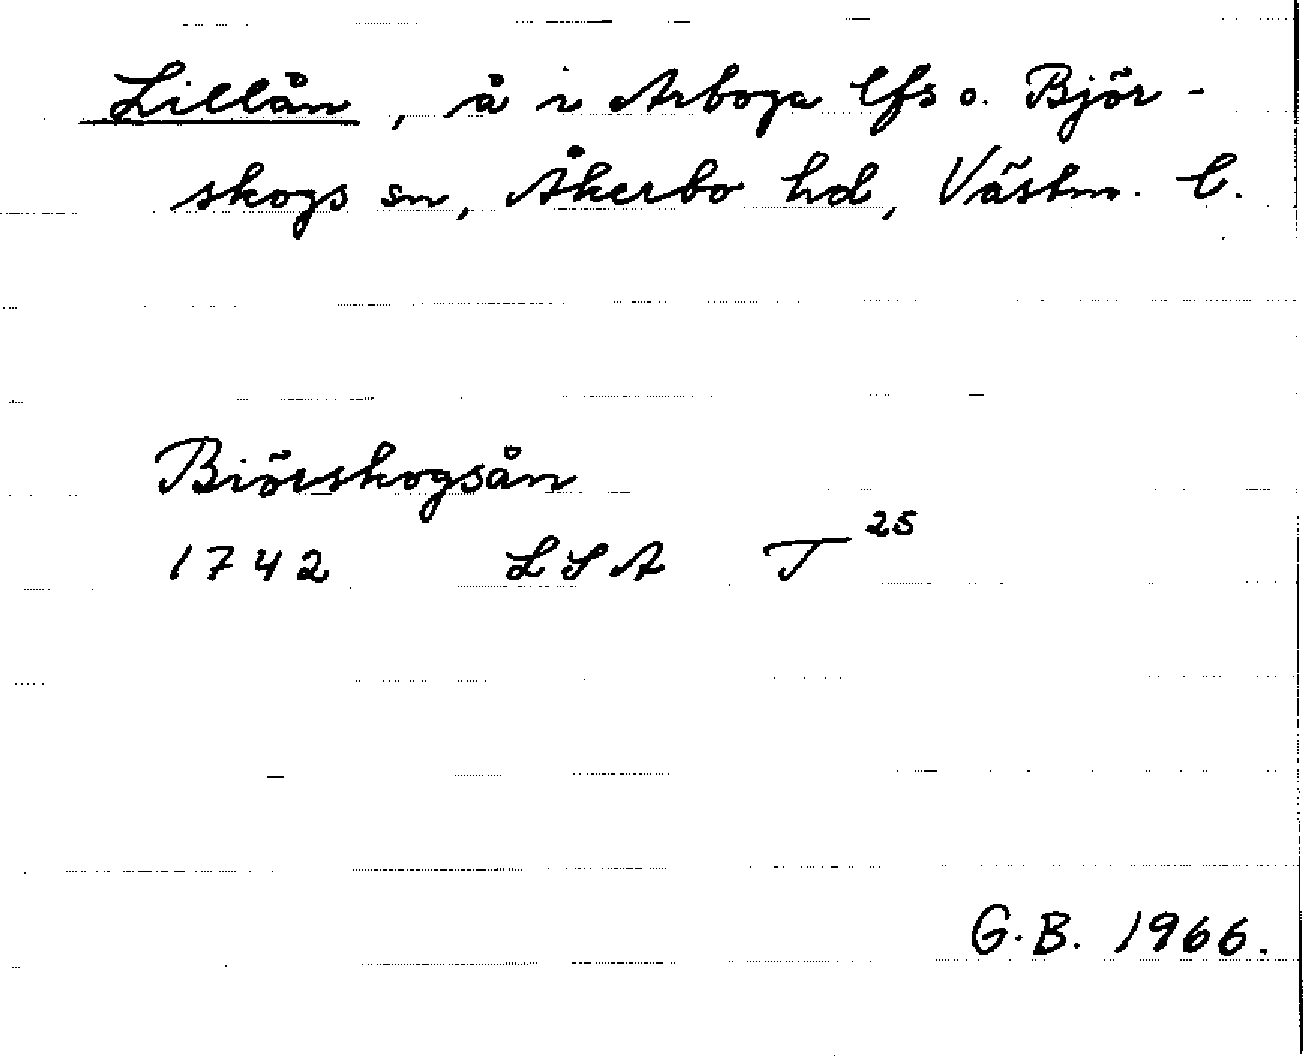 Lillån, å i Arboga lfs o. Björ-
skogs sn, Åkerbo hd, Västm. l.
Biörskogsån
1742 LSA T 25
G.B. 1966.